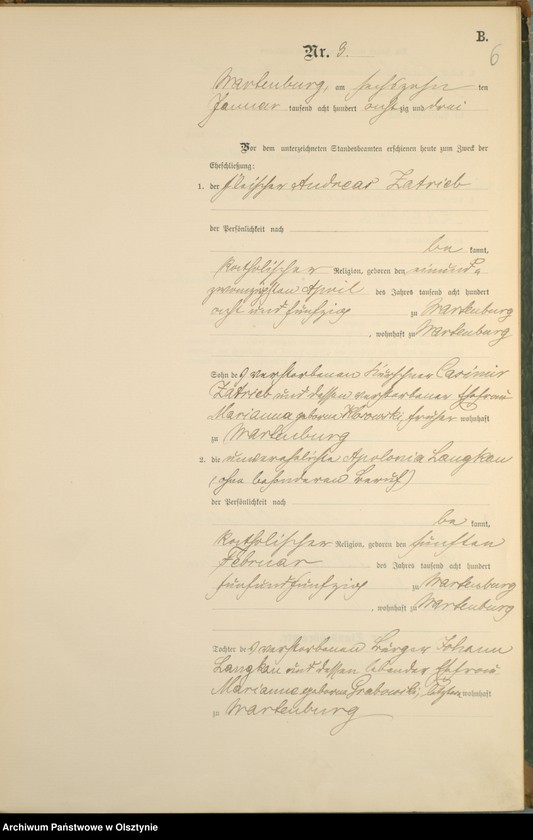 B.
6
Nr. 3.
Wartenburg, am sechszehn ten
Januar tausend acht hundert acht zig und drei
Vor dem unterzeichneten Standesbeamten erschienen heute zum Zweck der
Eheschließung:
1. der Fleischer Andreas Zatrieb
der Persönlichkeit nach
be kannt,
katholischer Religion, geboren den einund
zwanzigsten April des Jahres tausend acht hundert
acht und fünfzig zu Wartenburg
, wohnhaft zu Wartenburg
Sohn des verstorbenen Kürschner Casimir
Zatrieb und dessen verstorbener Ehefrau
Marianna geborene früher wohnhaft
zu Wartenburg
2. die unverehelichte Apolonia Langkau
(ohne besonderen Beruf)
der Persönlichkeit nach
be kannt,
katholischer Religion, geboren den fünften
Februar des Jahres tausend acht hundert
fünfundfünfzig zu Wartenburg
, wohnhaft zu Wartenburg
Tochter des verstorbenen Bürger Johann
Langkau und dessen lebender Ehefrau
Marianna geborene Grabowski, letztere wohnhaft
zu Wartenburg
Archiwum Państwowe w Olsztynie